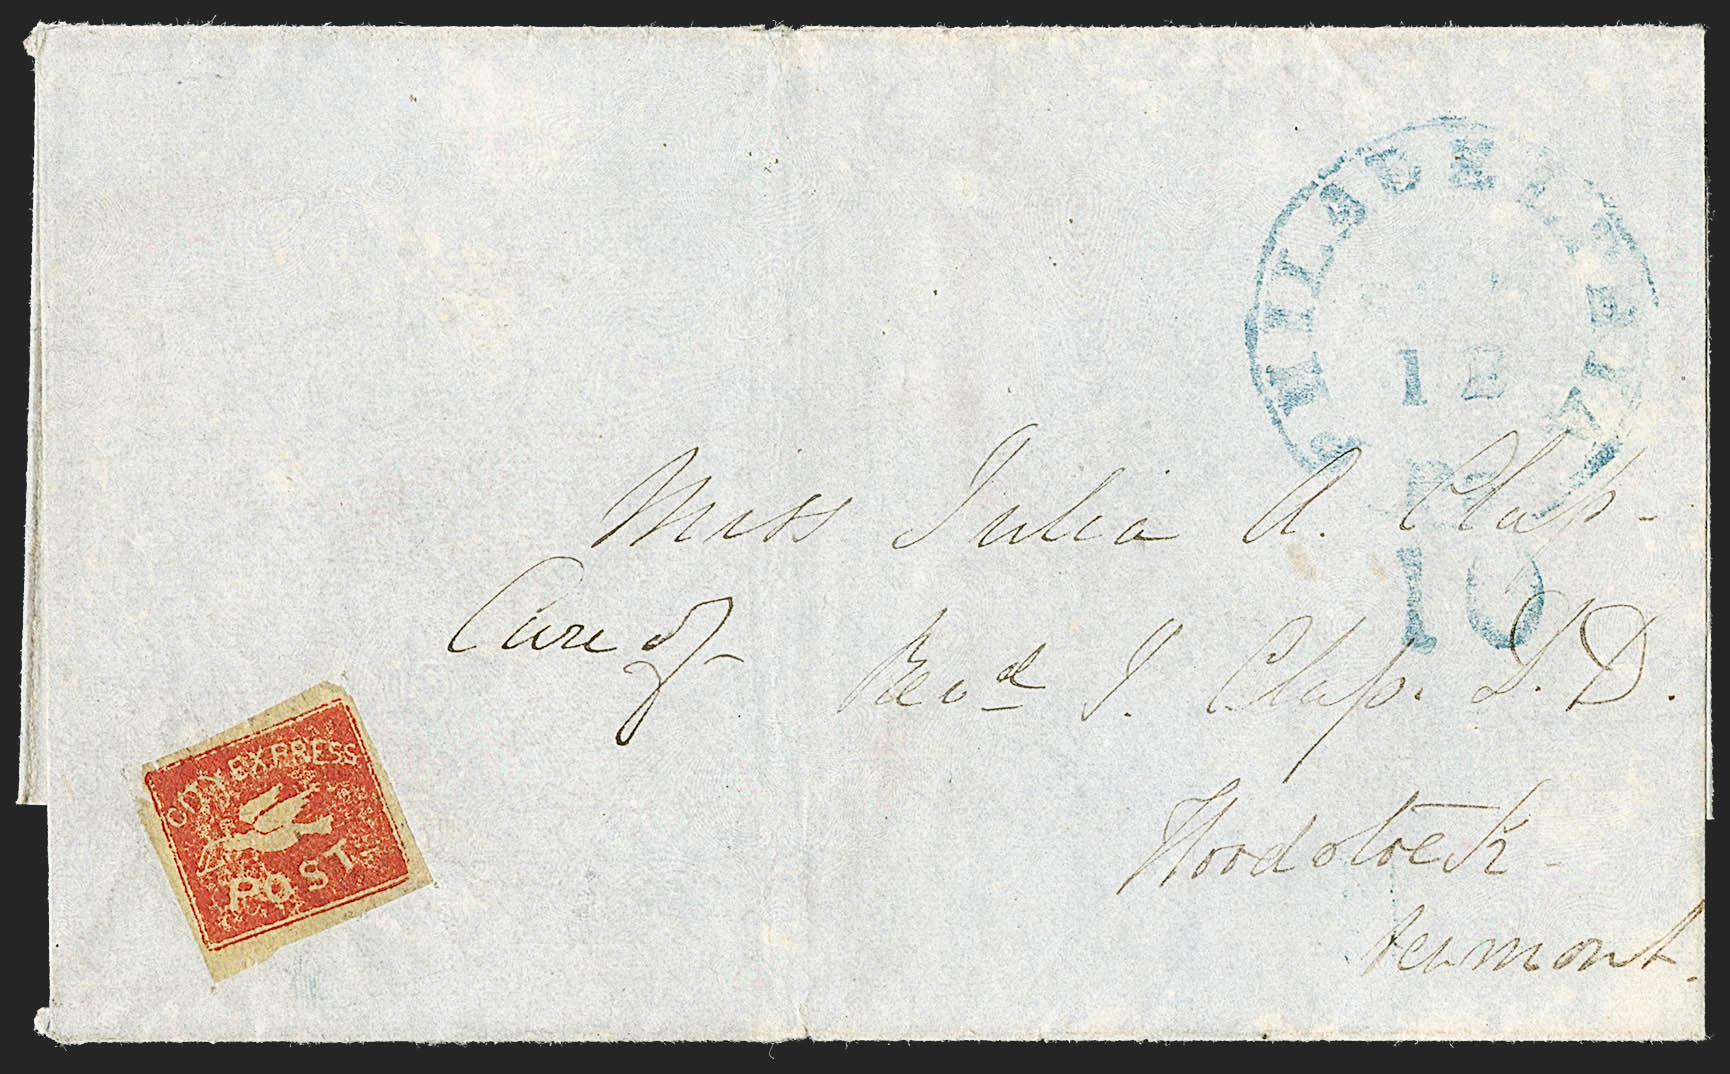 PHILADELPHIA
12
10
Miss Julia A. Clap-
Care of
Revd I. Clap. D.D.
Woodstock-
Vermont.
CITY EXPRESS
POST.